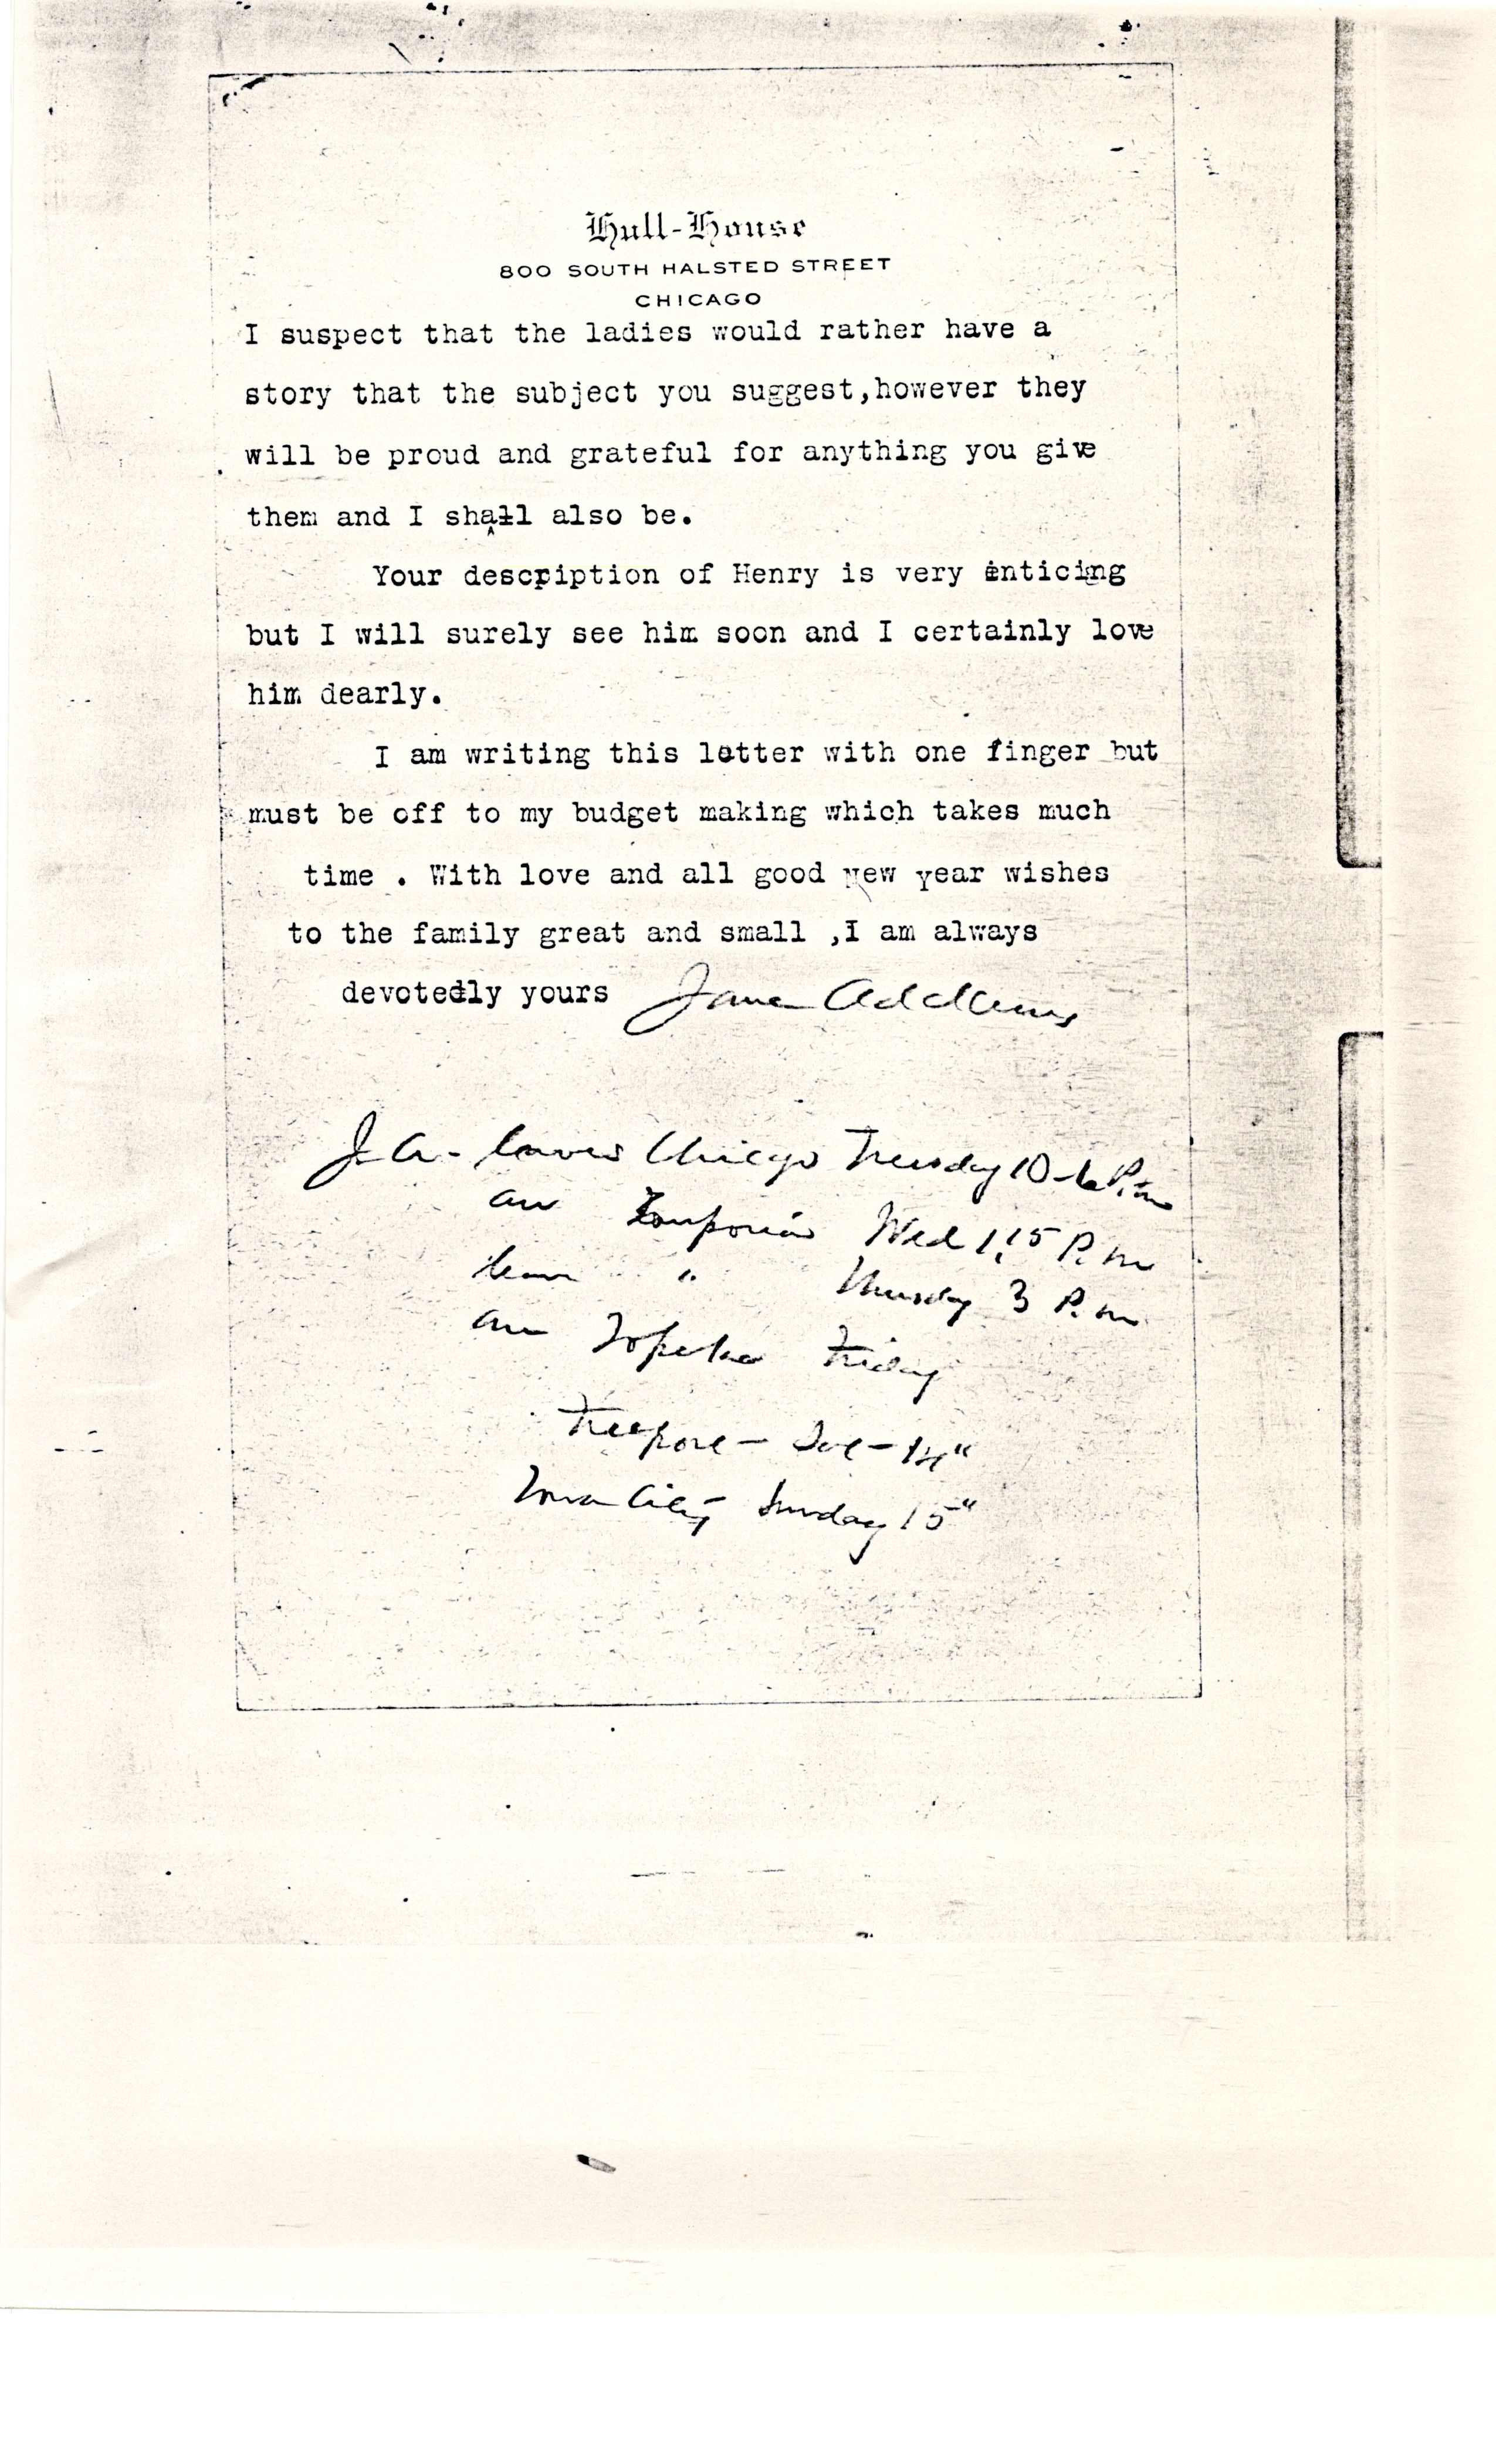 Hull-House
800 SOUTH HALSTED STREET
CHICAGO
I suspect that the ladies would rather have a
story that the subject you suggest,however they
will be proud and grateful for anything you give
them and I shall also be.
Your description of Henry is very enticing
but I will surely see him soon and I certainly love
him dearly.
I am writing this letter with one finger but
must be off to my budget making which takes much
time . With love and all good new year wishes
to the family great and small ,I am always
devotedly yours Jane Addams
J. A - leaves Chicago Tuesday 10 - 6 P.m
arr Emporia Wed 1.15 P. m
leave " Thursday 3 P. m
arr Topeka Friday
Freeport - Sat - 14"
Iowa City - Sunday 15"